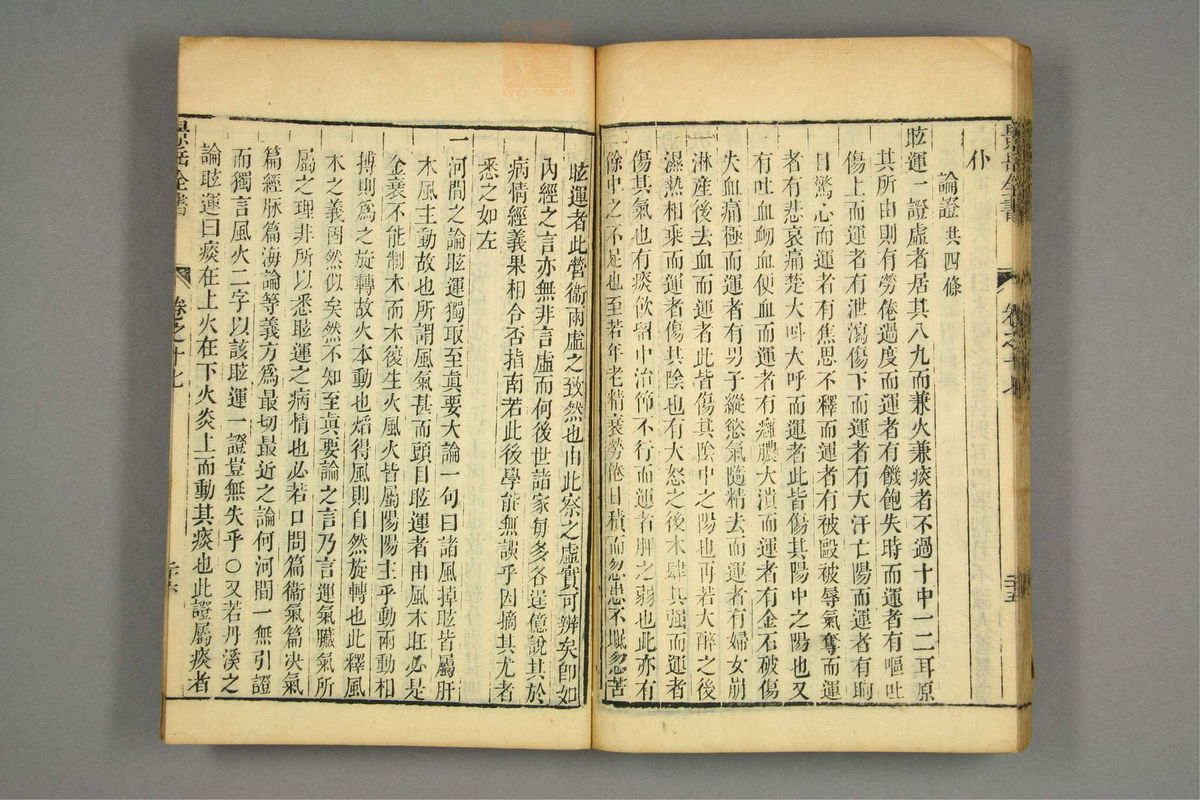 景岳全書 卷之十七 二十五
仆
論證共四條
眩運一證虛者居其八九而兼火兼痰者不過十中一二耳原
其所由則有勞倦過度而運者有饑飽失時而運者有嘔吐
傷上而運者有泄瀉傷下而運者有大汗亡陽而運者有眴
目驚心而運者有焦思不釋而運者有被毆被辱氣奪而運
者有悲哀痛楚大呌大呼而運者此皆傷其陽中之陽也又
有吐血衂血便血而運者有癰膿大潰而運者有金石破傷
失血痛極而運者有男子縱慾氣隨精去而運者有婦女崩
淋產後去血而運者此皆傷其陰中之陽也再若大醉之後
濕熱相乘而運者傷其陰也有大怒之後木肆其强而運者
傷其氣也有痰飲留中治節不行而運者脾之弱也此亦有
餘中之不足也至若年老精衰勞倦日積而忽患不眠忽苦
眩運者此營衞兩虛之致然也由此察之虛實可辨矣卽如
內經之言亦無非言虛而何後世諸家每多各逞億說其於
病情經義果相合否指南若此後學能無誤乎因摘其尤者
悉之如左
一河間之論眩運獨取至眞要大論一句曰諸風掉眩皆屬肝
木風主動故也所謂風氣甚而頭目眩運者由風木旺必是
金衰不能制木而木復生火風火皆屬陽陽主乎動兩動相
搏則爲之旋轉故火本動也熖得風則自然旋轉也此釋風
木之義固然似矣然不知至眞要論之言乃言運氣臟氣所
屬之理非所以悉眩運之病情也必若口問篇衞氣篇决氣
篇經脉篇海論等義方爲最切最近之論何河間一無引證
而獨言風火二字以該眩運一證豈無失乎○又若丹溪之
論眩運曰痰在上火在下火炎上而動其痰也此證屬痰者
景岳全書 卷之十七 二十六